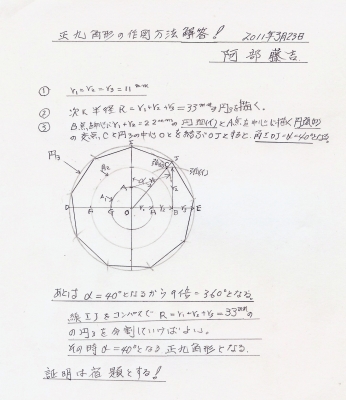 正九角形の作図方法 解答!
2011年3月23日
阿部藤吉
① r₁=r₂=r₃=11mm
② 次に半径R=r₁+r₂+r₃=33mmの円3を描く。
③ B点を中心にr₁+r₂=22mmの円弧(1)とA点を中心に描く円弧(2)
の交点Cと円3の中心Oとを結ぶOJとすると、角IOJ=α=40°
円3
I
J
A
D A G O r₁ A r₂ B r₃ E
あとはα=40°となるから9倍=360°となる。
線IJをコンパスでR=r₁+r₂+r₃=33mmの
の円3を分割していけばよい。
その時α=40°となる正九角形となる。
証明は宿題とする!